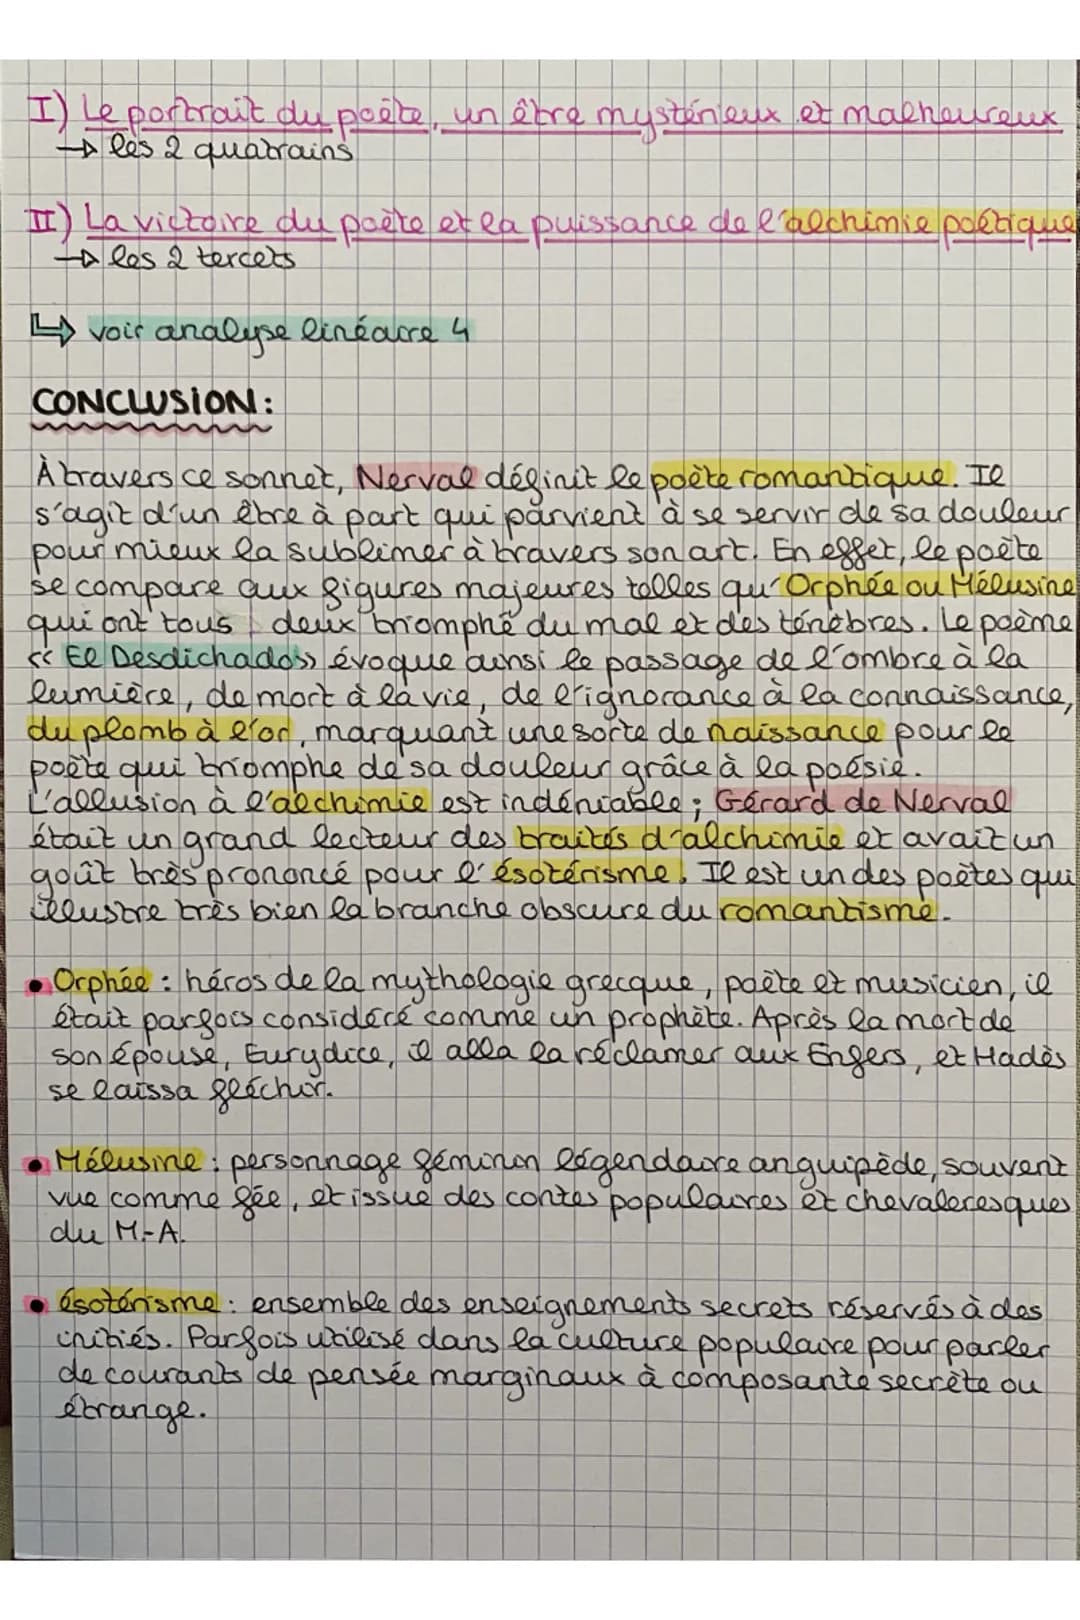 I) Le portrait du poète, un être mystérieux et malheureux
→ les 2 quatrains
II) La victoire du poète et la puissance de l'alchimie poétique
→ les 2 tercets
↳ voir analyse linéaire 4
CONCLUSION:
À travers ce sonnet, Nerval définit le poète romantique. Il
s'agit d'un être à part qui parvient à se servir de sa douleur
pour mieux la sublimer à travers son art. En effet, le poète
se compare aux figures majeures telles qu'Orphée ou Mélusine
qui ont tous deux triomphé du mal et des ténèbres. Le poème
« El Desdichado » évoque ainsi le passage de l'ombre à la
lumière, de mort à la vie, de l'ignorance à la connaissance,
du plomb à l'or, marquant une sorte de naissance pour le
poète qui triomphe de sa douleur grâce à la poésie.
L'allusion à l'alchimie est indéniable ; Gérard de Nerval
était un grand lecteur des traités d'alchimie et avait un
goût très prononcé pour l'ésotérisme. Il est un des poètes qui
illustre très bien la branche obscure du romantisme.
• Orphée : héros de la mythologie grecque, poète et musicien, il
était parfois considéré comme un prophète. Après la mort de
son épouse, Eurydice, il alla la réclamer aux Enfers, et Hadès
se laissa fléchir.
• Mélusine : personnage féminin légendaire anguipède, souvent
vue comme fée, et issue des contes populaires et chevaleresques
du M.-A.
• ésotérisme : ensemble des enseignements secrets réservés à des
initiés. Parfois utilisé dans la culture populaire pour parler
de courants de pensée marginaux à composante secrète ou
étrange.